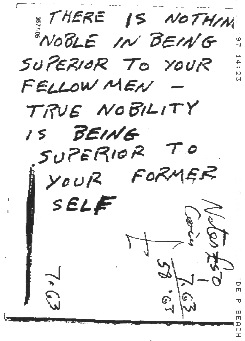 THERE IS NOTHIN
NOBLE IN BEING
SUPERIOR TO YOUR
FELLOW MEN –
TRUE NOBILITY
IS BEING
SUPERIOR TO
YOUR FORMER
SELF
7.63
58.63
7.63
Notes
97 14:23